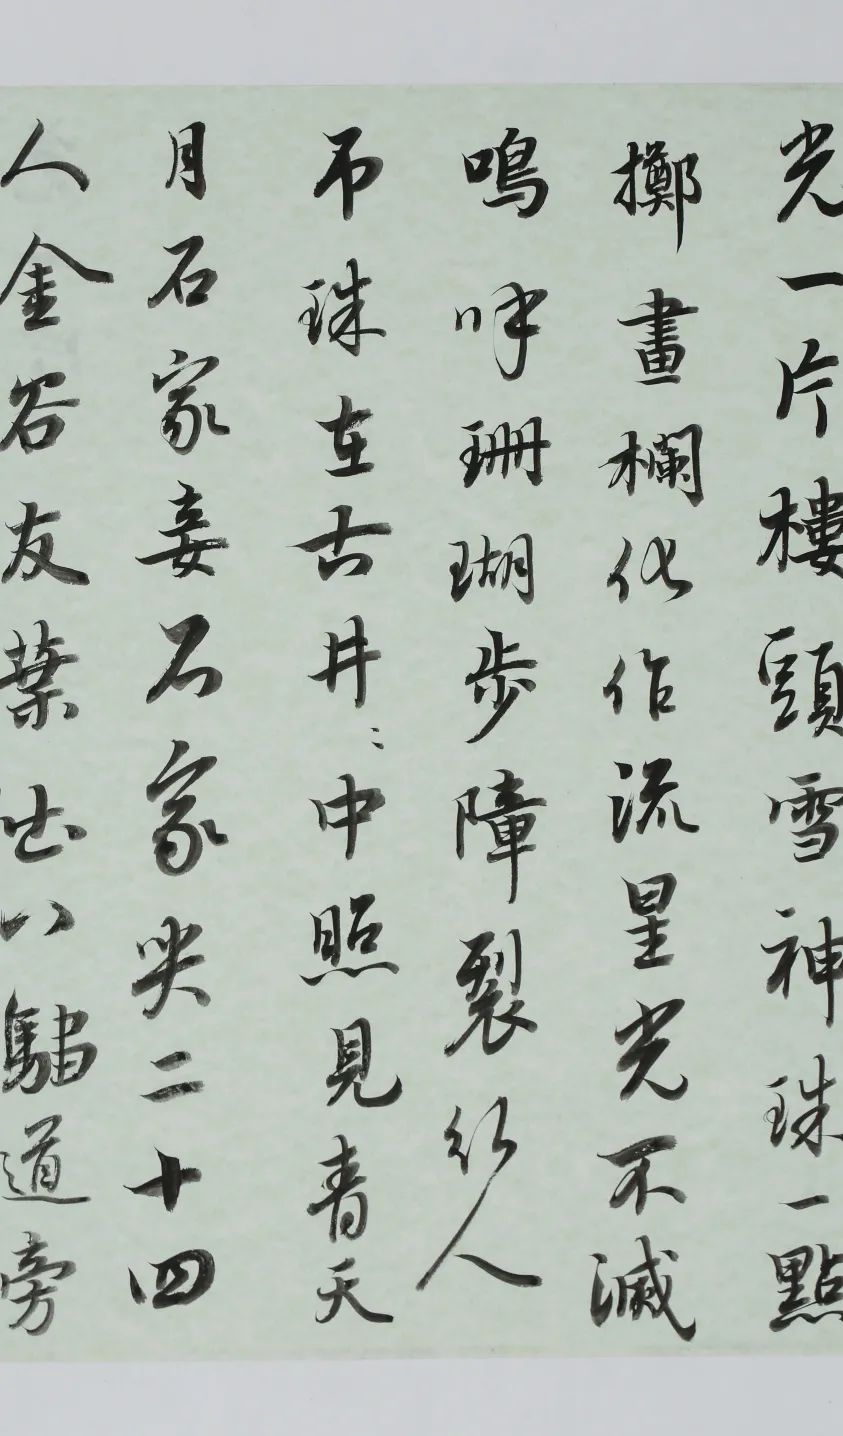 光一片樓頭雪神珠一點
擲畫欄化作流星光不滅
鳴呼珊瑚步障裂行人
吊珠在古井〻中照見青天
月石家妾石家哭二十四
人金谷友葉出八驌道旁